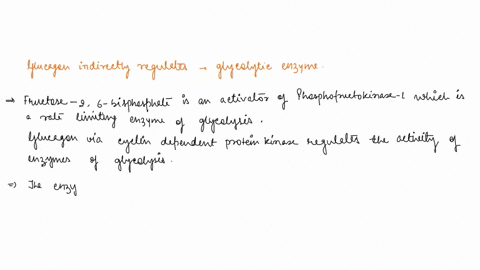 Glucagon indirectly regulates → glycolytic enzyme.
→ Fructose-2, 6-bisphosphate is an activator of Phosphofructokinase-1 which is
a rate limiting enzyme of glycolysis.
Glucagon via cyclin dependent protein kinase regulates the activity of
enzymes of glycolysis.
⇒ The enzy